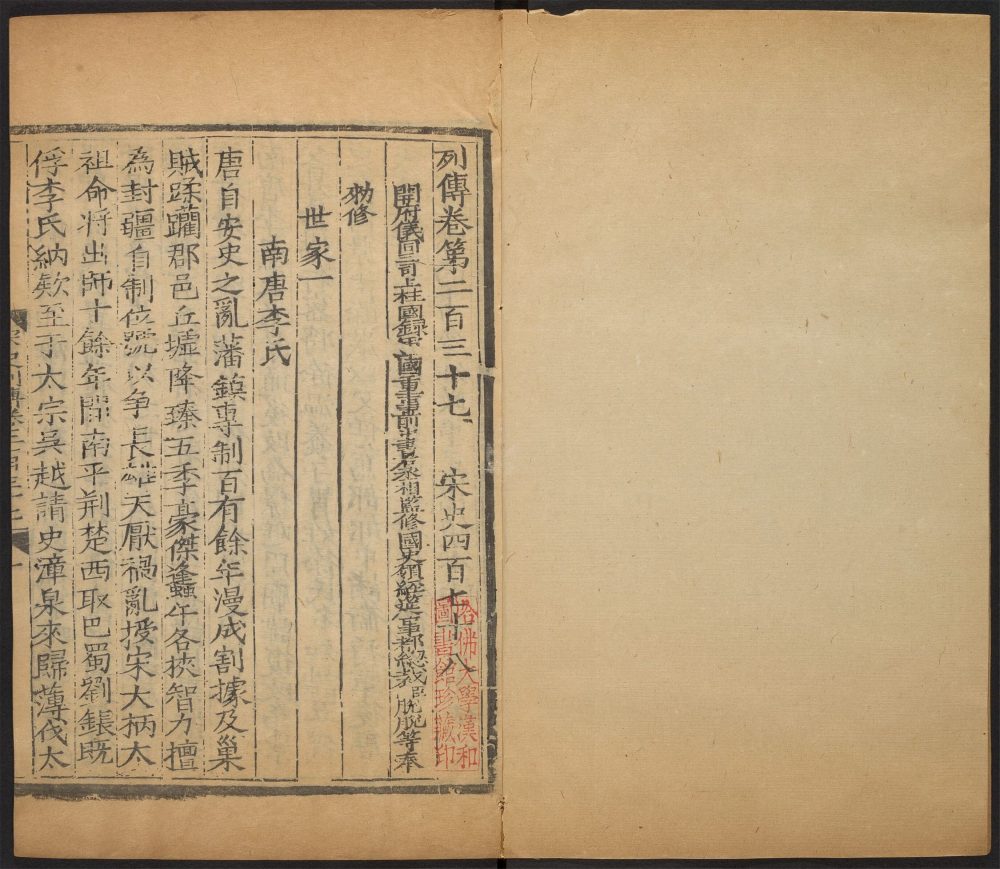 列傳卷第二百三十七　宋史四百七十八
開府儀同三司上柱國錄軍國重事前中書右丞相監修國史領經筵事都總裁臣脫脫等奉
勑修
世家一
南唐李氏
唐自安史之亂藩鎮專制百有餘年漫成割據及巢
賊蹂躪郡邑丘墟降臻五季豪傑蠭午各挾智力擅
為封疆自制位號以争長雄天厭禍亂授宋大柄太
祖命将出師十餘年間南平荆楚西取巴蜀劉鋹既
俘李氏納欵至于太宗吳越請吏漳泉來歸薄伐太
哈佛大學漢和
圖書館珍藏印